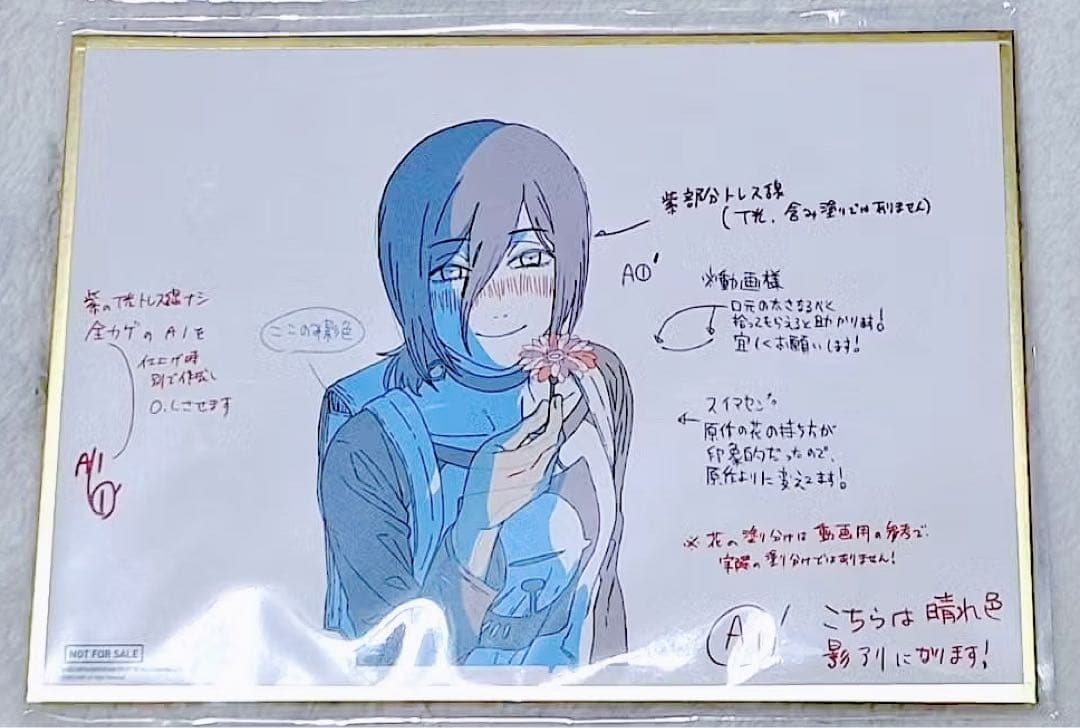 紫部分トレス線
(T光、含み塗りではありません)
A①'
※動画様
口元の太さなるべく
拾ってもらえると助かります!
宜しくお願いします!
紫のT光トレス線ナシ
全カゲのA1を
仕上げ時
別で作成し
O.Lさせます
A/1
①'
ここのみ影色
スイマセン
原作の花の持ち方が
印象的だったので、
原作よりに変えてます!
※花の塗り分けは動画用の参考で
実際の塗り分けではありません!
A1'
こちらは晴れ色
影アリになります!
NOT FOR SALE